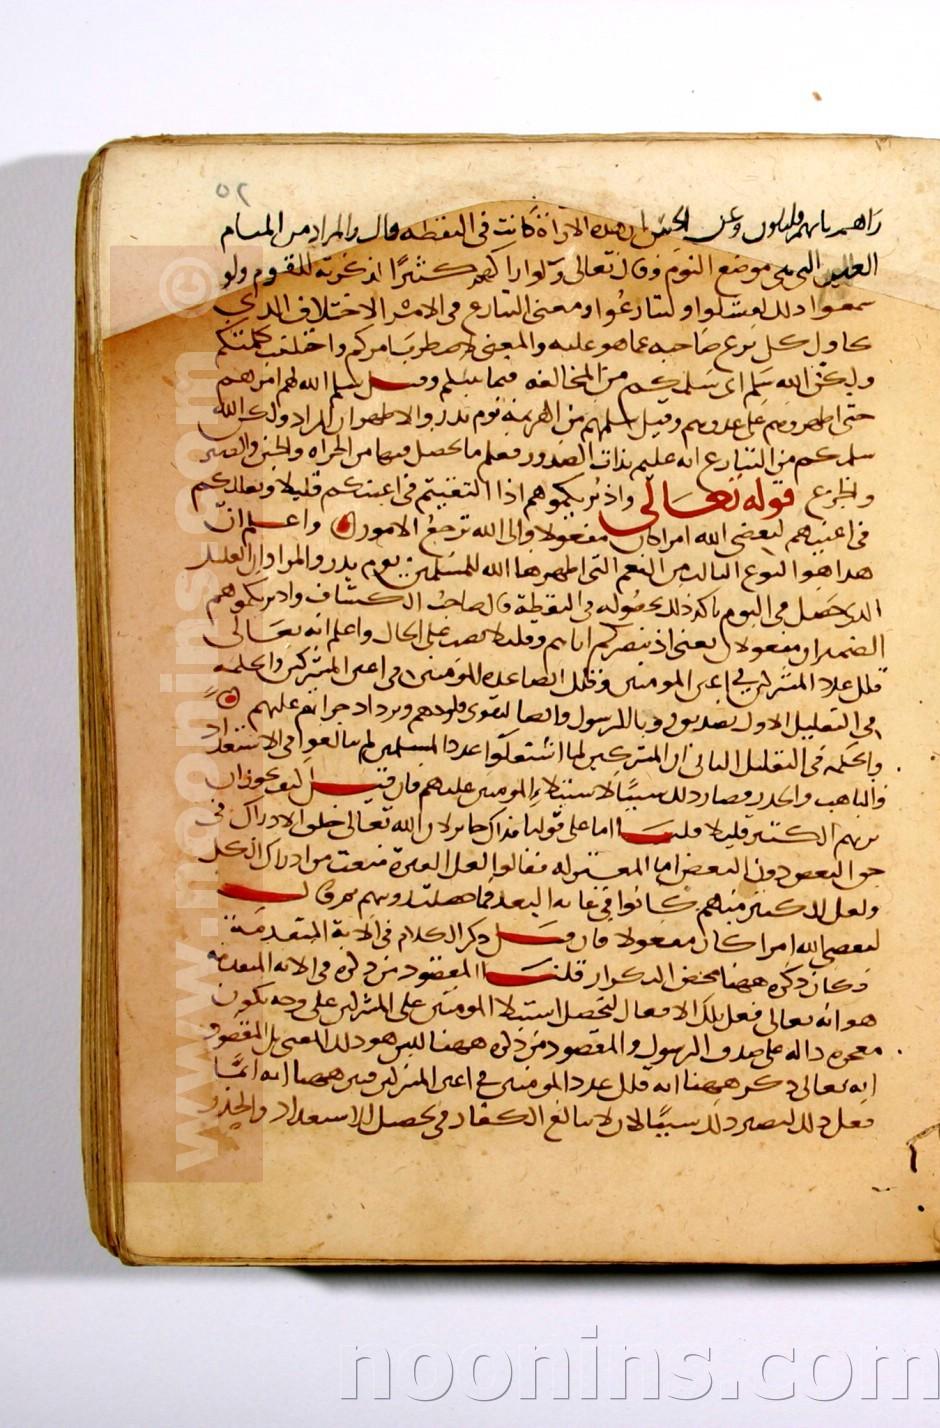 ٥٢
راهم بانهم قليلون وعن الحسن ان هذه الاراة كانت في اليقظه قال والمراد من المنام
العين التي هي موضع النوم وقال تعالى ولو اراكهم كثيرًا اذ ذكرته للقوم ولو
سمعوا ذلك لفشلوا ولتنازعوا ومعنى التنازع في الامر الاختلاف الذي
يحاول كل نزع صاحبه عما هو عليه والمعنى لاضطرب امركم واختلفت كلمتكم
ولكن الله سلم اى سلمكم من المخالفه فيما بينكم وقيل سلم الله لهم امرهم
حتى اظهرهم على عدوهم وقيل سلمهم من الهزيمة يوم بدر والاظهر ان المراد ولكن الله
سلمكم من التنازع انه عليم بذات الصدور فيعلم ما يحصل فيها من الجراه والجبن والصبر
والجزع قوله تعالى واذ يريكموهم اذ التقيتم في اعينكم قليلا ويقللكم
في اعينهم ليقضي الله امرا كان مفعولا والى الله ترجع الامور واعلم ان
هذا هو النوع الثالث من النعم التي اظهرها الله للمسلمين يوم بدر والمراد ان القليل
الذي حصل في النوم تاكد ذلك بحصوله في اليقظة قال صاحب الكشاف واذ يريكموهم
الضميران مفعولان يعني اذ يبصركم اياهم وقليلا نصب على الحال واعلم انه تعالى
قلل عدد المشركين في اعين المومنين وقلل ايضا عدد المومنين في اعين المشركين والحكمة
في التقليل الاول تصديق رويا الرسول وايضا لتقوى قلوبهم وتزداد جراتهم عليهم
والحكمة في التقليل الثاني ان المشركين لما استقلوا عدد المسلمين لم يبالغوا في الاستعداد
والتاهب والحذر فصار ذلك سببًا لاستيلاء المومنين عليهم فان قيل كيف يجوز ان
يريهم الكثير قليلا قلنا اما على قولنا فذاك جائز لان الله تعالى خلق الادراك في
حق البعض دون البعض اما المعتزله فقالوا لعل العين منعت من ادراك الكل
ولعل الكثير منهم كانوا في غاية البعد فما حصلت رويتهم ثم قال
ليقضي الله امرا كان مفعولا فان قيل ذكر الكلام في الاية المتقدمة
فكان ذكره ههنا محض التكرار قلنا المقصود من ذكره في الاية المتقدمة
هو انه تعالى فعل تلك الافعال لتحصل استيلا المومنين على المشركين على وجه يكون
معجزه داله على صدق الرسول والمقصود من ذكره ههنا ليس هو ذلك المعنى بل المقصود
انه تعالى ذكر ههنا انه قلل عدد المومنين في اعين المشركين فبين ههنا انه انما
فعل ذلك ليصير ذلك سببًا لان لا يبالغ الكفار في تحصيل الاستعداد والحذر